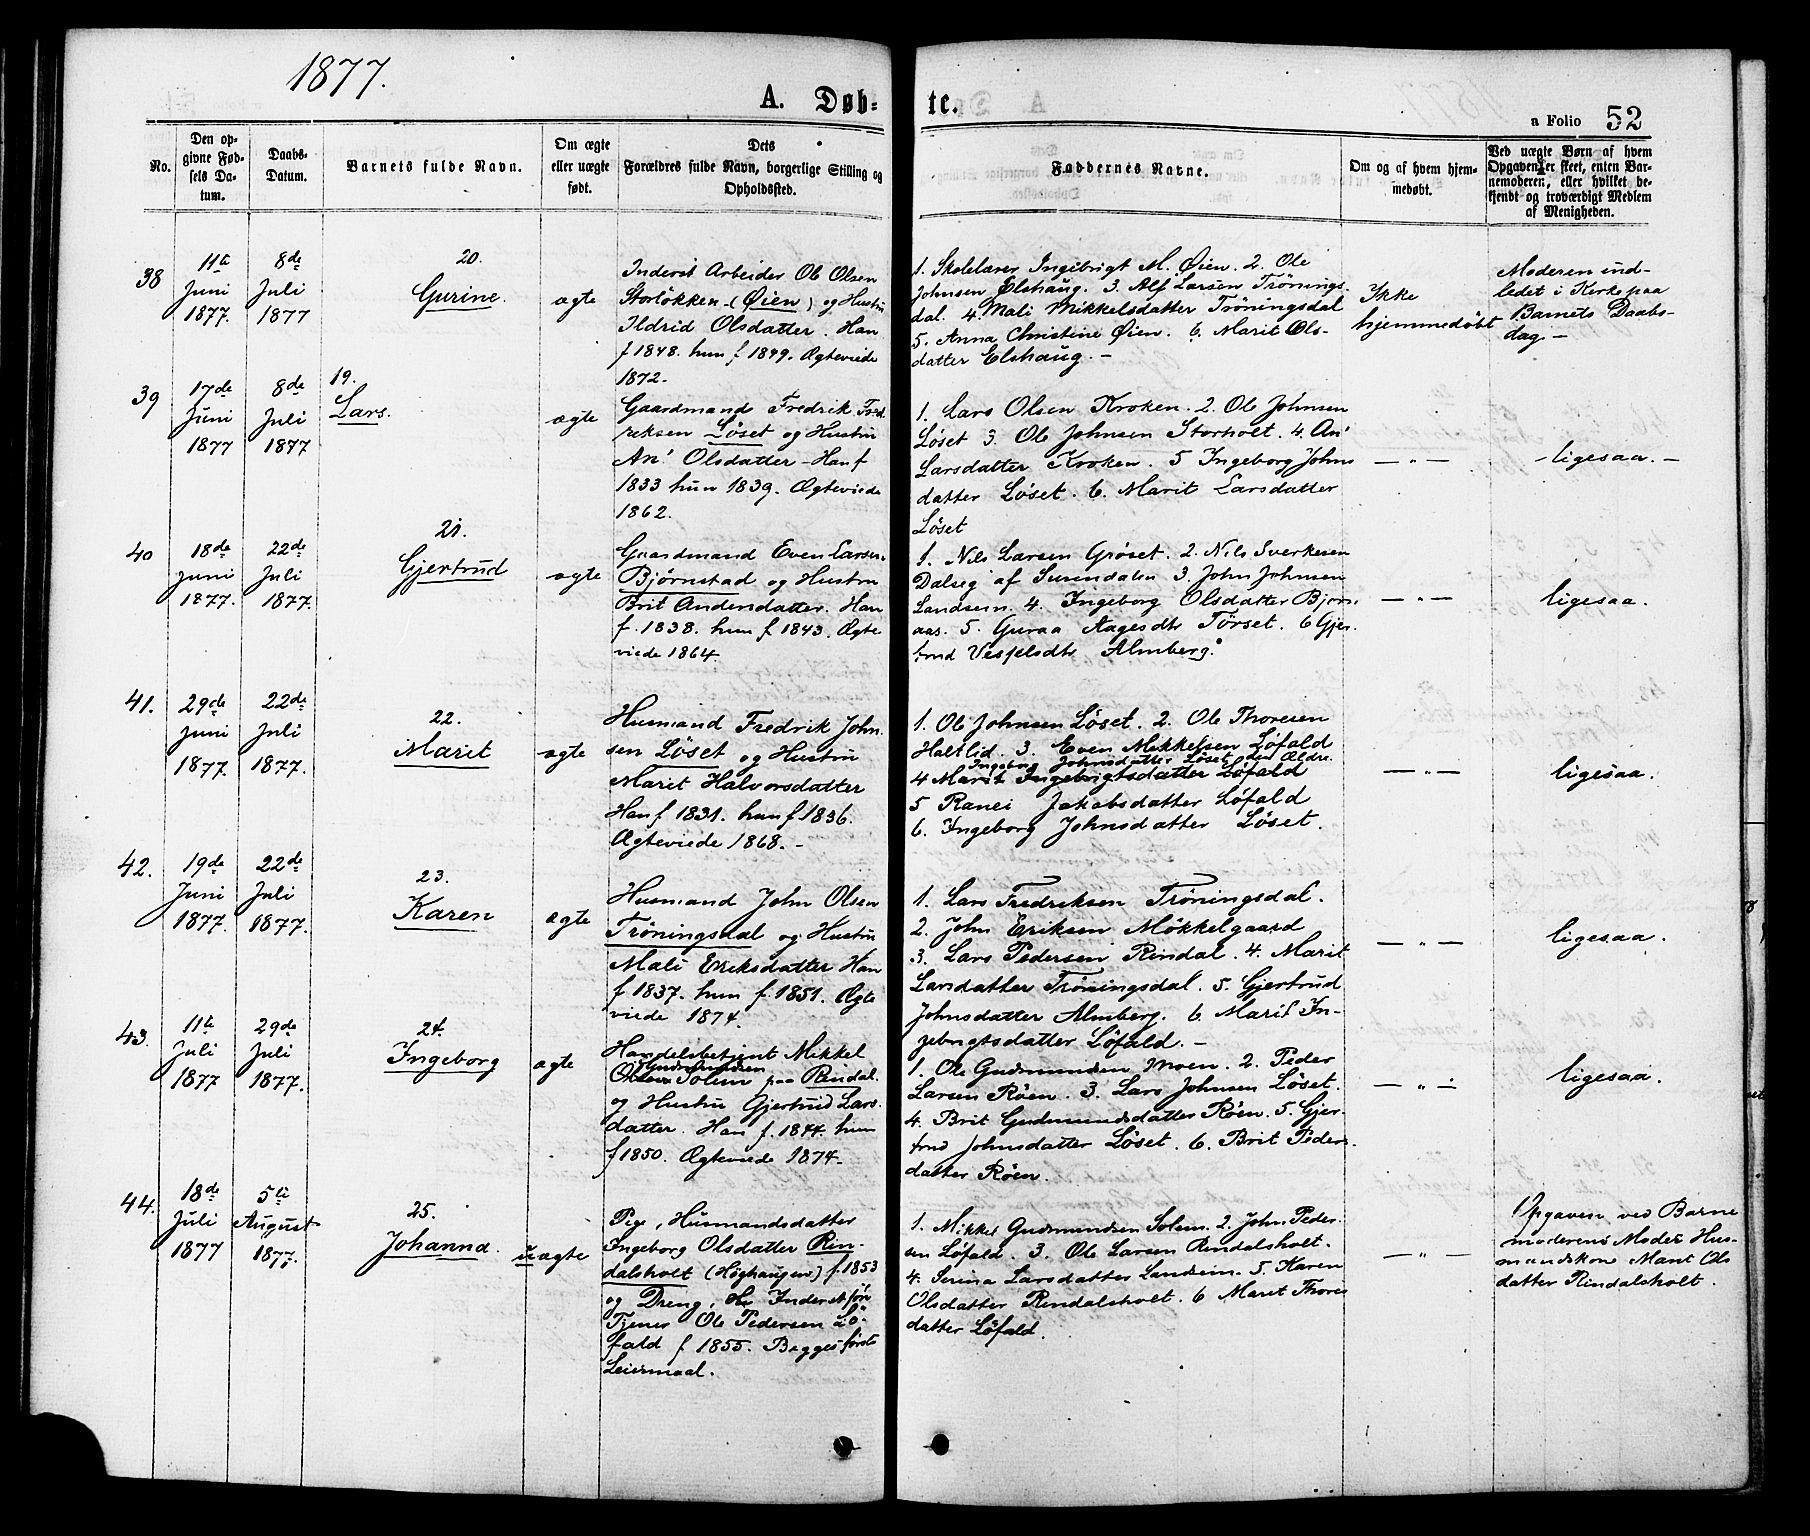 1877.
A. Døb-
te.
a Folio 52
No.
Den op-
givne Fød-
sels Da-
tum.
Daabs-
Datum.
Barnets fulde Navn.
Om ægte
eller uægte
født.
Dets
Forældres fulde Navn, borgerlige Stilling og
Opholdssted.
Faddernes Navne.
Om og af hvem hjem-
medøbt.
Ved uægte Børn af hvem
Opgaven er skeet, enten Bar-
nemoderen, eller hvilket be-
kjendt og troværdigt Medlem
af Menigheden.
38
11te
Juni
1877.
8de
Juli
1877
20.
Gurine.
ægte
Inderst Arbeider Ole Olsen
Storløkken (Øien) og Hustru
Ildrid Olsdatter. Han
f 1848. hun f 1849. Ægteviede
1872.
1. Skolelærer Ingebrigt M. Øien. 2. Ole
Johnsen Elshaug. 3. Alf Larsen Trönings-
dal. 4. Mali Mikkelsdatter Tröningsdal
5. Anna Christine Øien. 6. Marit Ols-
datter Elshaug. -
Ikke
hjemmedøbt
Moderen ind-
ledet i Kirke paa
Barnets Daabs-
dag -
39
17de
Juni
1877
8de
Juli
1877
19.
Lars.
ægte
Gaardmand Fredrik Fred
reksen Löset og Hustru
An' Olsdatter - Han f
1833 hun 1839. Ægteviede
1862.
1. Lars Olsen Kroken. 2. Ole Johnsen
Löset 3. Ole Johnsen Storholt. 4. An'
Larsdatter Kroken. 5 Ingeborg Johns
datter Löset. 6. Marit Larsdatter
Löset
— " —
- ligesaa. -
40
18de
Juni
1877.
22de
Juli
1877.
21.
Gjertrud
ægte
Gaardmand Even Larsen
Bjørnstad og Hustru
Brit Andersdatter. Han
f. 1838. hun f 1843. Ægte
viede 1864.
1. Nils Larsen Grøset. 2. Nils Sverkesen
Dalseg af Surendalen 3. John Johnsen
Landsem. 4. Ingeborg Olsdatter Bjørn
aas. 5. Guraa Aagesdtr Törset. 6 Gjer-
trud Vesselsdtr Almberg.
— " —
ligesaa.
41.
29de
Juni
1877.
22de
Juli
1877.
22.
Marit
ægte
Husmand Fredrik John
sen Löset og Hustru
Marit Halvorsdatter
Han f 1831. hun f 1836.
Ægteviede 1868. -
1. Ole Johnsen Löset. 2. Ole Thoresen
Haltlid. 3. Even Mikkelsen Löfald
Ingeborg Johnsdatter Löset den Ældre.
4 Marit Ingebrigtsdatter Löfald
5 Ranei Jakobsdatter Löfald
6. Ingeborg Johnsdatter Löset.
— " —
ligesaa.
42.
19de
Juni
1877.
22de
Juli
1877.
23.
Karen
ægte
Husmand John Olsen
Tröningsdal og Hustru
Mali Eriksdatter Han
f 1837. hun f. 1851. Ægte
viede 1874.
1. Lars Fredriksen Tröningsdal.
2. John Eriksen Møkkelgaard
3. Lars Pedersen Rindal. 4. Marit
Larsdatter Tröningsdal. 5. Gjertrud
Johnsdatter Almberg. 6. Marit In-
gebrigtsdatter Löfald. -
— " —
ligesaa.
43.
11te
Juli
1877
29de
Juli
1877.
24.
Ingeborg
ægte
Handelsbetjent Mikkel
Gudmundsen
Olsen Solem paa Rindal.
og Hustru Gjertrud Lars-
datter. Han f. 1844. hun
f 1850. Ægteviede 1874.
1. Ole Gudmundsen Moen. 2. Peder
Larsen Röen. 3. Lars Johnsen Löset.
4. Brit Gudmundsdatter Röen. 5. Gjer-
trud Johnsdatter Löset. 6. Brit Peders
datter Röen.
— " —
ligesaa.
44.
18de
Juli
1877
5te
August
1877.
25.
Johanna.
uægte
Pige, Husmandsdatter
Ingeborg Olsdatter Rin-
dalsholt (Höghaugen) f. 1853
og Dreng, Inderstsøn
Tjener Ole Pedersen Lö-
fald f 1855. Begges første
Leiermaal.
1. Mikkel Gudmundsen Solem. 2. John Peder-
sen Löfald. 3. Ole Larsen Rindalsholt.
4. Serina Larsdatter Landsem. 5. Karen
Olsdatter Rindalsholt. 6 Marit Thores
datter Löfald.
— " —
Opgaven ved Barne
moderens Moder Hus-
mandskone Marit Ols
datter Rindalsholt.